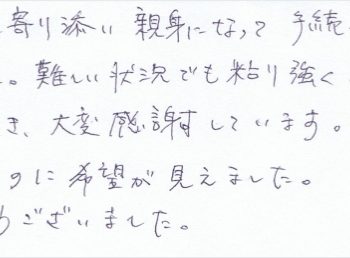 寄り添い 親身になって 手続
。難しい状況でも粘り強く
き、大変感謝しています。
のに希望が見えました。
うございました。